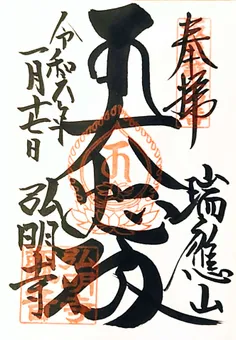 奉拝
瑞應山
大悲殿
令和六年
一月十七日
弘明寺